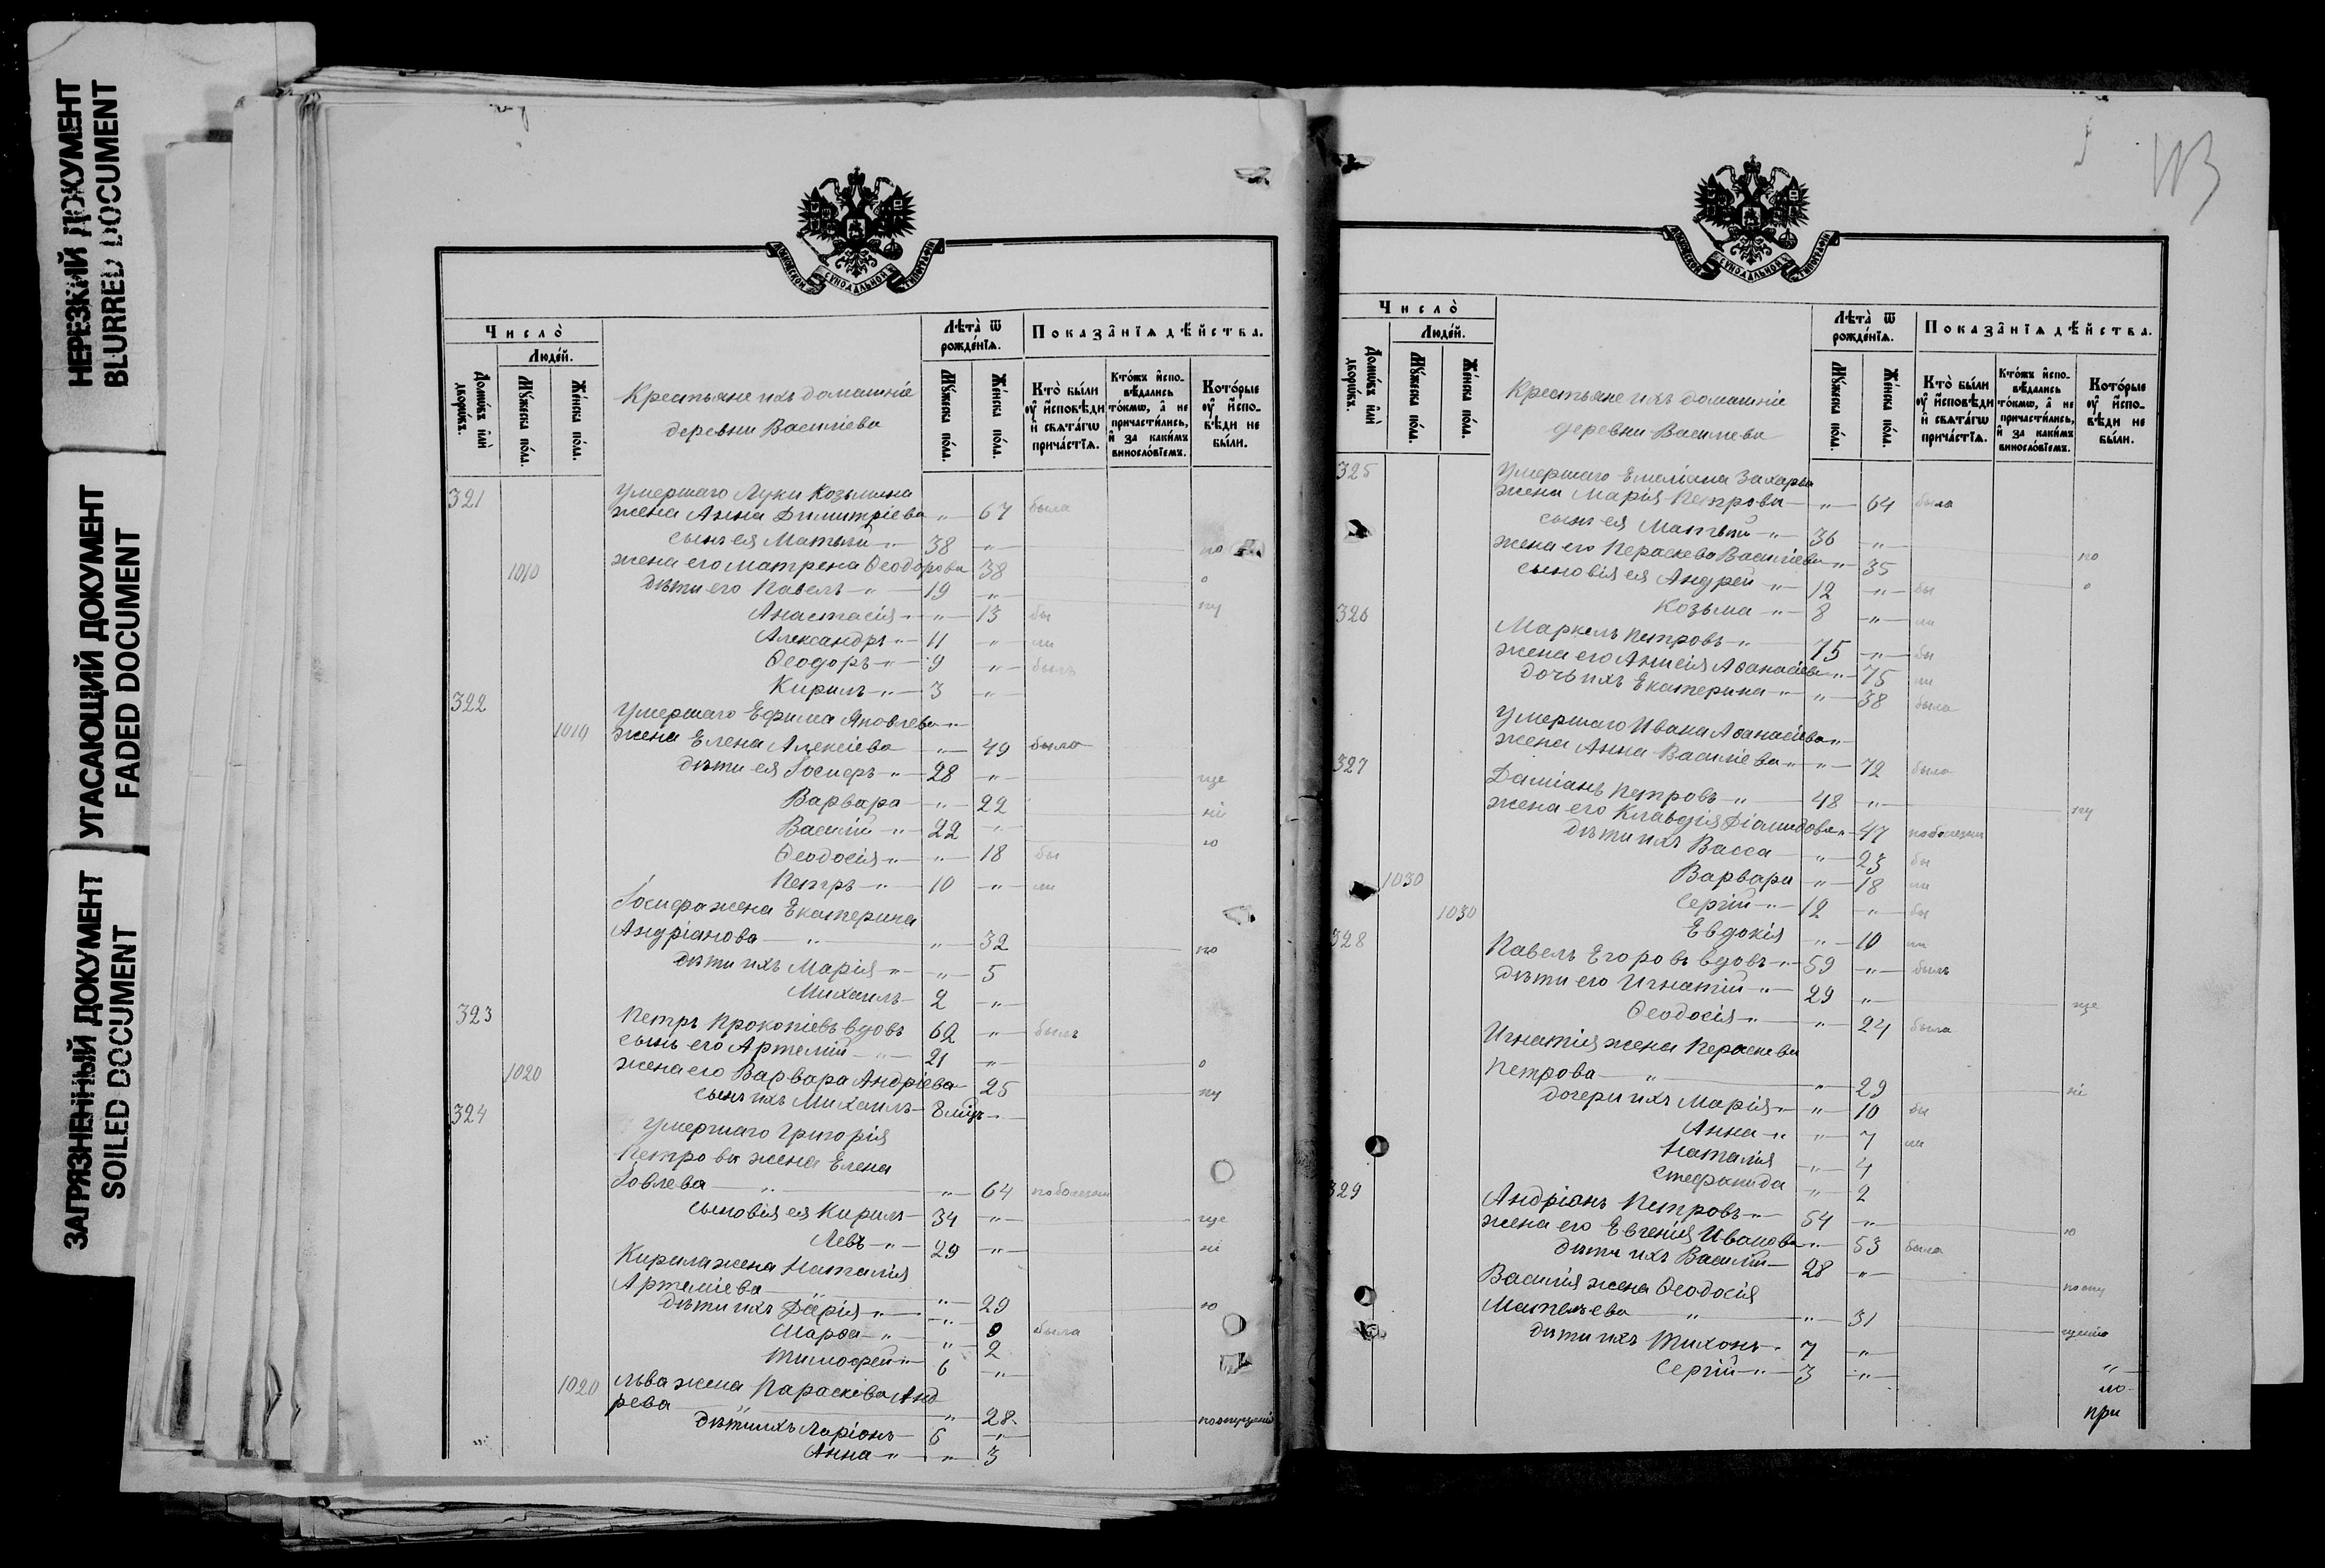 НЕРЕЗКИЙ ДОКУМЕНТ
BLURRED DOCUMENT
УГАСАЮЩИЙ ДОКУМЕНТ
FADED DOCUMENT
ЗАГРЯЗНЕННЫЙ ДОКУМЕНТ
SOILED DOCUMENT
МОСКОВСКОЙ СѴНОДАЛЬНОЙ ТИПОГРАФІИ
Число̀
Людéй.
Домѡ́въ и҆лѝ дворѡ́въ.
Мꙋ́жеска по́ла.
Же́нска по́ла.
Крестьяне ихъ домашніе
деревни Василіева
Лѣта̀ ѿ рожде́нїѧ.
Мꙋ́жеска по́ла.
Же́нска по́ла.
Показа̂нїѧ дѣ́йства.
Кто̀ бы́ли ᲂу҆ и҆сповѣ́ди и҆ свѧта́гѡ прича́стїѧ.
Кто́жъ и҆спо-вѣ́дались то́кмѡ, а҆ не причасти́лись, и҆ за каки́мъ винослѡ́вїемъ.
Кото́рые ᲂу҆ и҆спо-вѣ́ди не бы́ли.
321 Умершаго Луки Козьмина
жена Анна Димитріева " 67 была
сынъ ея Матѳій " 38 " по
жена его Матрена Ѳеодорова 38
1010 дѣти его Павелъ " 19 " о
Анастасія " " 13 бы пу
Александръ " 11 " ли
Ѳеодоръ " 9 " былъ
Кирилъ " 3 "
322 Умершаго Ефима Яковлева "
1010 жена Елена Алексіева " 49 была
дѣти ея Іосифъ " 28 " ще
Варвара " 22 ні
Василій " 22 " ю
Ѳеодосія " " 18 бы
Петръ " 10 " ли
Іосифа жена Екатерина
Андріанова " " 32 по
дѣти ихъ Марія " " 5
Михаилъ 2 "
323 Петръ Прокопіевъ вдовъ 62 " былъ
сынъ его Артемій " 21 " о
1020 жена его Варвара Андріева 25 пу
сынъ ихъ Михаилъ 8 мѣц "
324 Умершаго Григорія
Петрова жена Елена
Іовлева " " 64 по болезни
сыновія ея Кирилъ 34 " ще
Левъ " 29 " ні
Кирила жена Наталія
Артеміева " 29 ю
дѣти ихъ Дарія " " 9 была
Марѳа " " 2
Тимофей " 6 "
1020 Льва жена Параскева Анд
рева " " 28 по опущенію
дѣти ихъ Ларіонъ 6 "
Анна " " 3
113
МОСКОВСКОЙ СѴНОДАЛЬНОЙ ТИПОГРАФІИ
Число̀
Людéй.
Домѡ́въ и҆лѝ дворѡ́въ.
Мꙋ́жеска по́ла.
Же́нска по́ла.
Крестьяне ихъ домашніе
деревни Василіева
Лѣта̀ ѿ рожде́нїѧ.
Мꙋ́жеска по́ла.
Же́нска по́ла.
Показа̂нїѧ дѣ́йства.
Кто̀ бы́ли ᲂу҆ и҆сповѣ́ди и҆ свѧта́гѡ прича́стїѧ.
Кто́жъ и҆спо-вѣ́дались то́кмѡ, а҆ не причасти́лись, и҆ за каки́мъ винослѡ́вїемъ.
Кото́рые ᲂу҆ и҆спо-вѣ́ди не бы́ли.
325 Умершаго Емеліана Захарва
жена Марія Петрова " 64 была
сынъ ея Матѳій " 36 "
жена его Пераскева Василіева " 35 по
сыновія ея Андрей " 12 " бы о
Козьма " 8 " ли
326 Маркелъ Петровъ " 75 " бы
жена его Анисія Аѳанасіева " 75 ли
дочь ихъ Екатерина " " 38 была
Умершаго Ивана Аѳанасіева "
жена Анна Василіева " " 72 была
327 Даміанъ Петровъ " 48 " пу
жена его Клавдія Діамидова " 47 по болезни
дѣти ихъ Васса " 23 бы
1030 Варвара " 18 ли
Сергій " 12 " бы
1030 Евдокія " 10 ли
328 Павелъ Егоровъ вдовъ " 59 " былъ
дѣти его Игнатій " 29 " ще
Ѳеодосія " " 24 была
Игнатія жена Пераскева
Петрова " " 29 ні
дочери ихъ Марія " " 10 бы
Анна " " 7 ли
Наталія " 4
Стефанида " 2
329 Андріанъ Петровъ " 54 " ю
жена его Евгенія Иванова " 53 была
дѣти ихъ Василій 28 " по опу
Василія жена Ѳеодосія
Матвѣева " " 31 щенію
дѣти ихъ Тихонъ " 7 " "
Сергій " 3 "
при